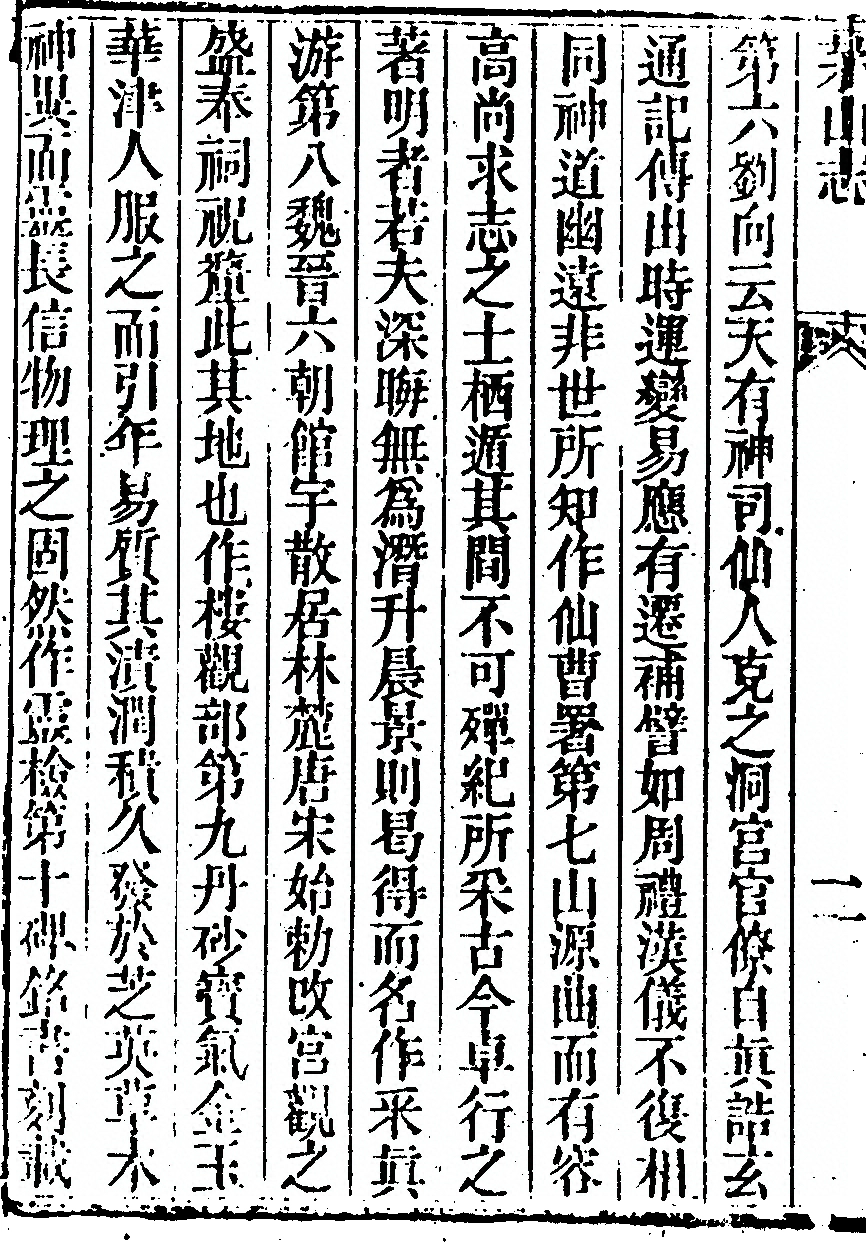 茅山志
二
第六劉向云天有神司仙人克之洞宮官僚自眞誥玄
通記傳出時運變易應有遷補譬如周禮漢儀不復相
同神道幽遠非世所知作仙曹署第七山源曲而有容
高尚求志之士栖遁其間不可殫紀所采古今卓行之
著明者若夫深晦無爲潛升晨景則曷得而名作采眞
游第八魏晉六朝館宇散居林麓唐宋始勅改宮觀之
盛奉祠祝釐此其地也作樓觀部第九丹砂寶氣金玉
華津人服之而引年易質其漬潤積久發於芝英草木
神異而靈長信物理之固然作靈檢第十碑銘書刻載